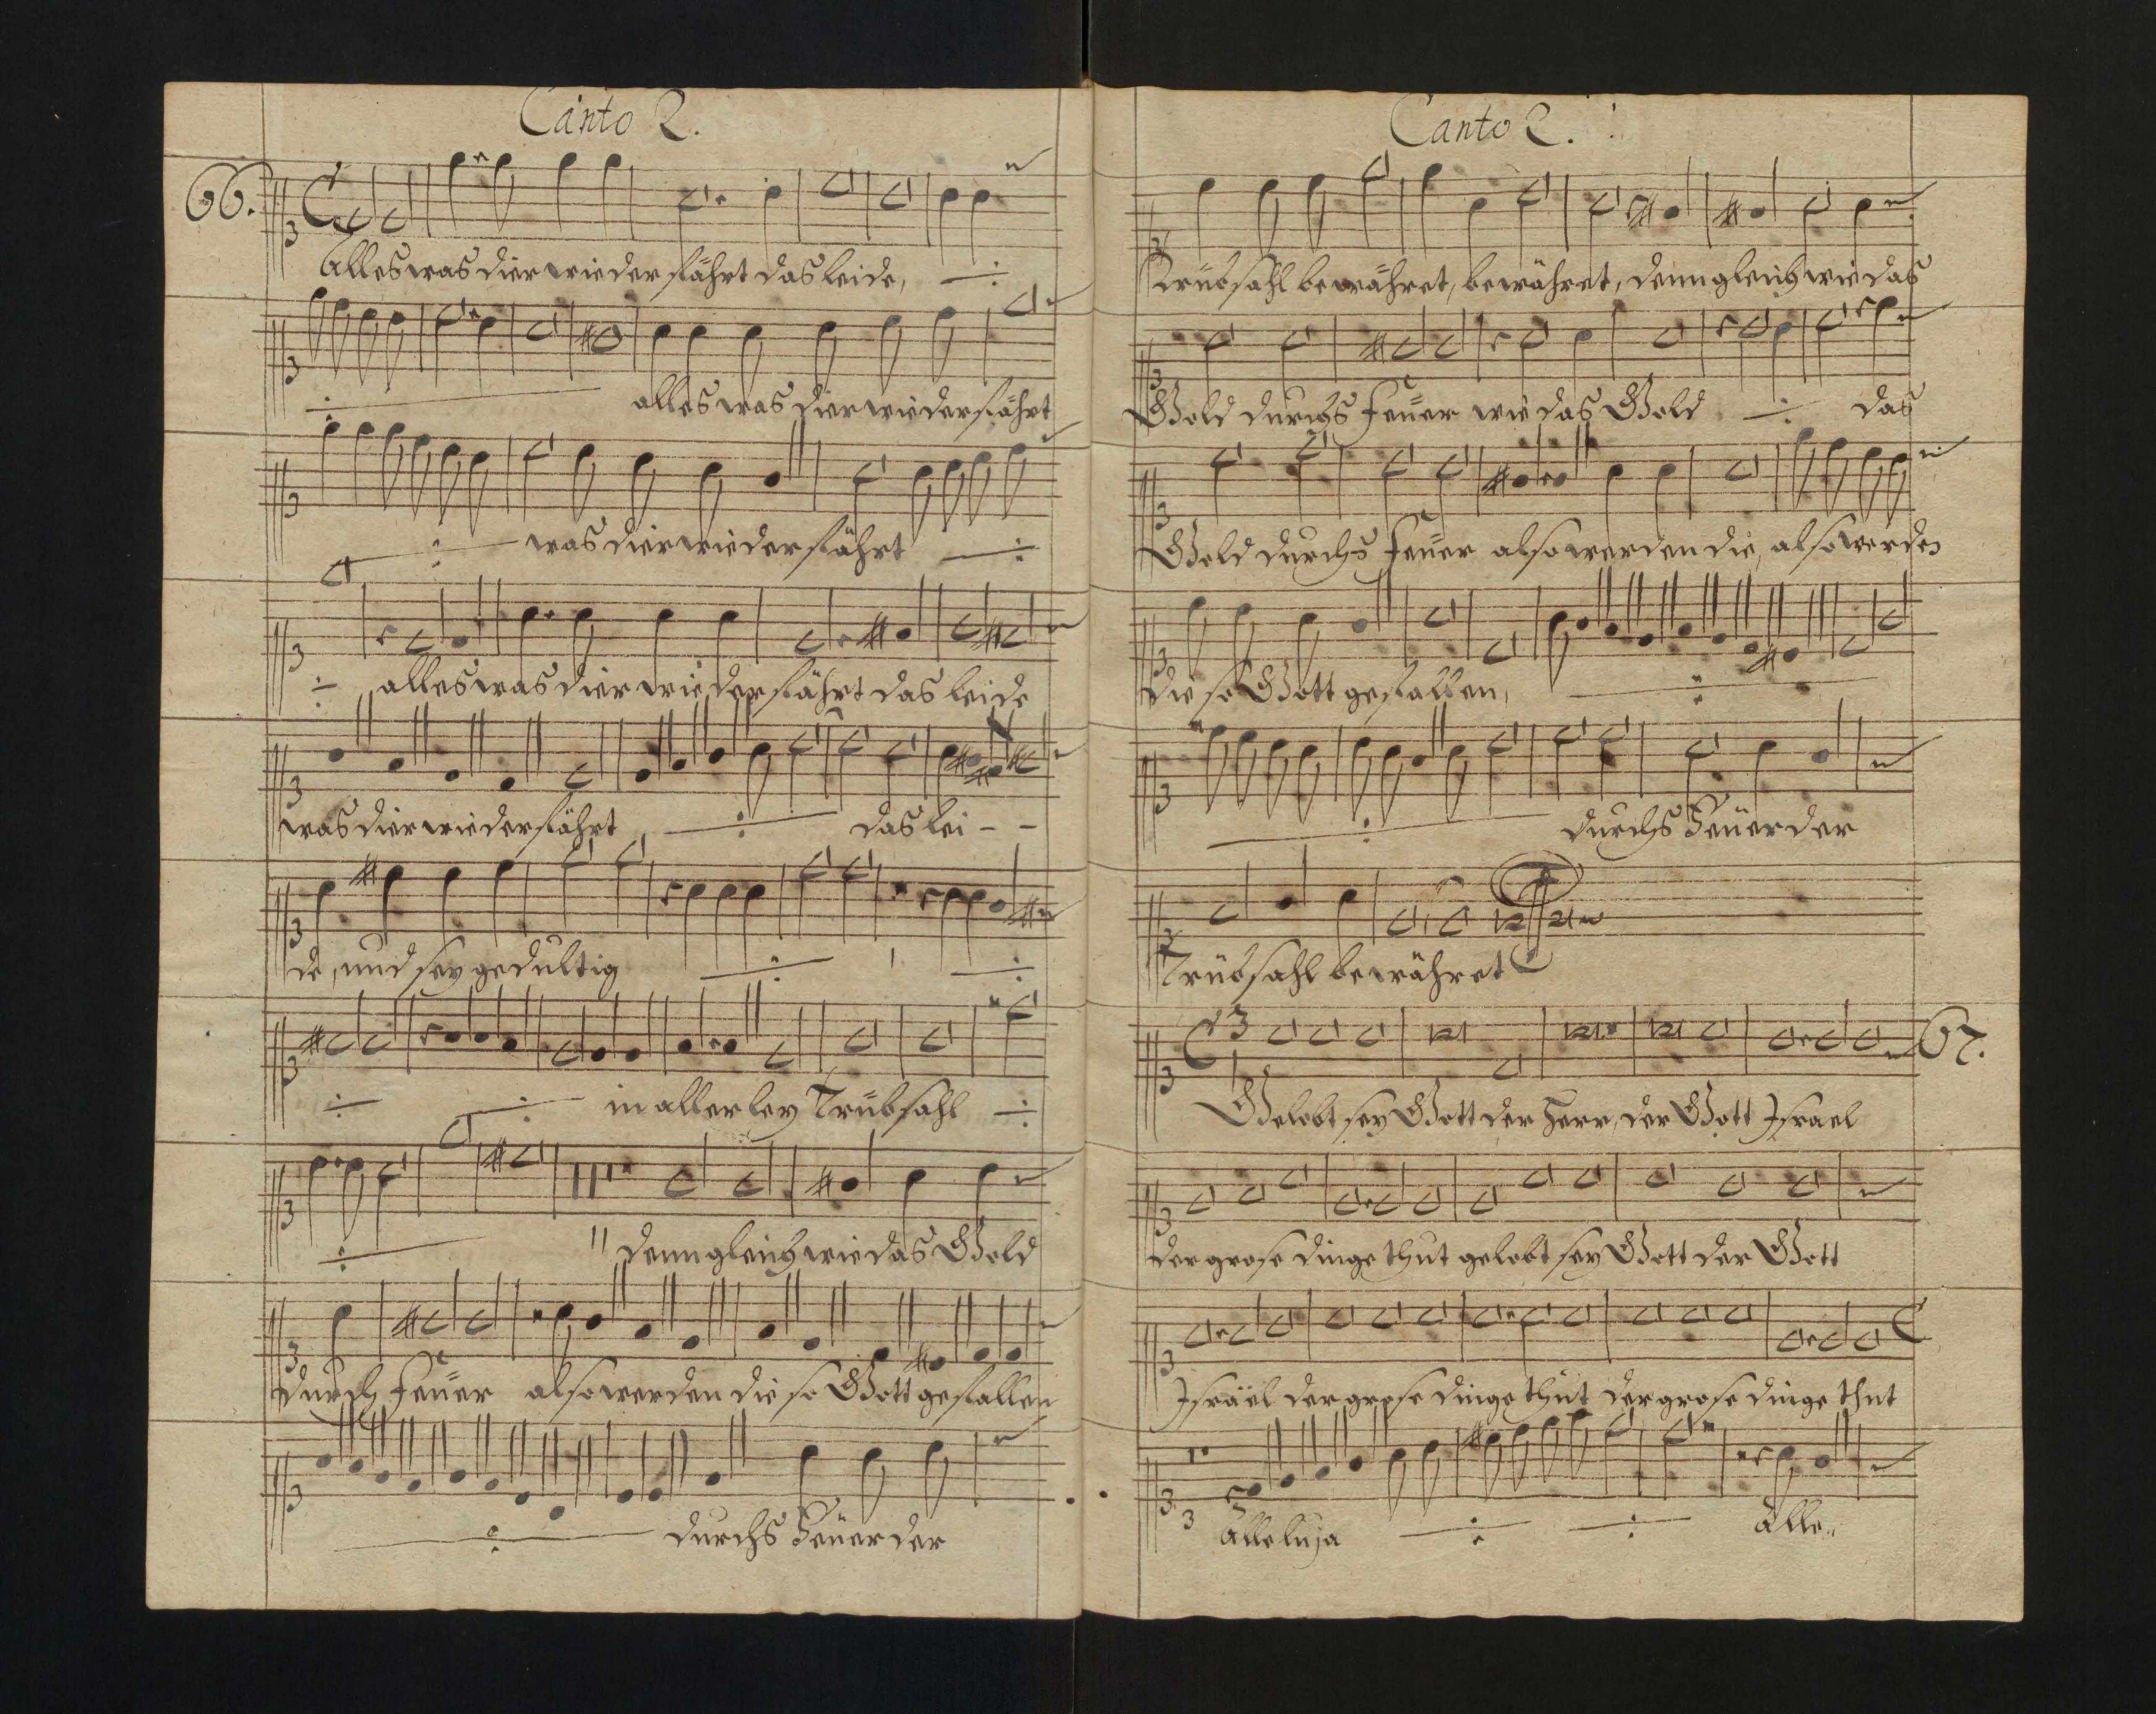 Canto 2.
66.
Alles was dier wiederfährt das leide,
alles was dier wiederfährt
was dier wiederfährt
alles was dier wiederfährt das leide
was dier wiederfährt, das lei - -
de, und sey gedultig
in allerley Trübsahl
denn gleich wie das Gold
durch Feüer also werden die so Gott gefallen
durchs Feüer der
Canto 2.
Trübsahl bewähret, bewähret, denn gleich wie das
Gold durchs Feüer wie das Gold das
Gold durchs Feüer also werden die, also werden
die so Gott gefallen,
durchs Feüer der
Trübsahl bewähret
67.
Gelobt sey Gott der Herr, der Gott Israel
der grose dinge thut gelobt sey Gott der Gott
Israël der grose dinge thut der grose dinge thut
Alleluja Alle,,